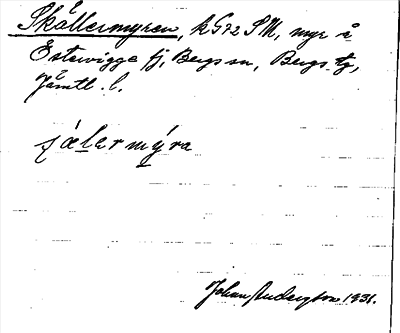 Skållermyren, k G72 SM, myr i
Östervigge fj, Bergs sn, Bergs tg,
Jämtl. l.
ʃǽlermýra
Johan Andersson 1931.